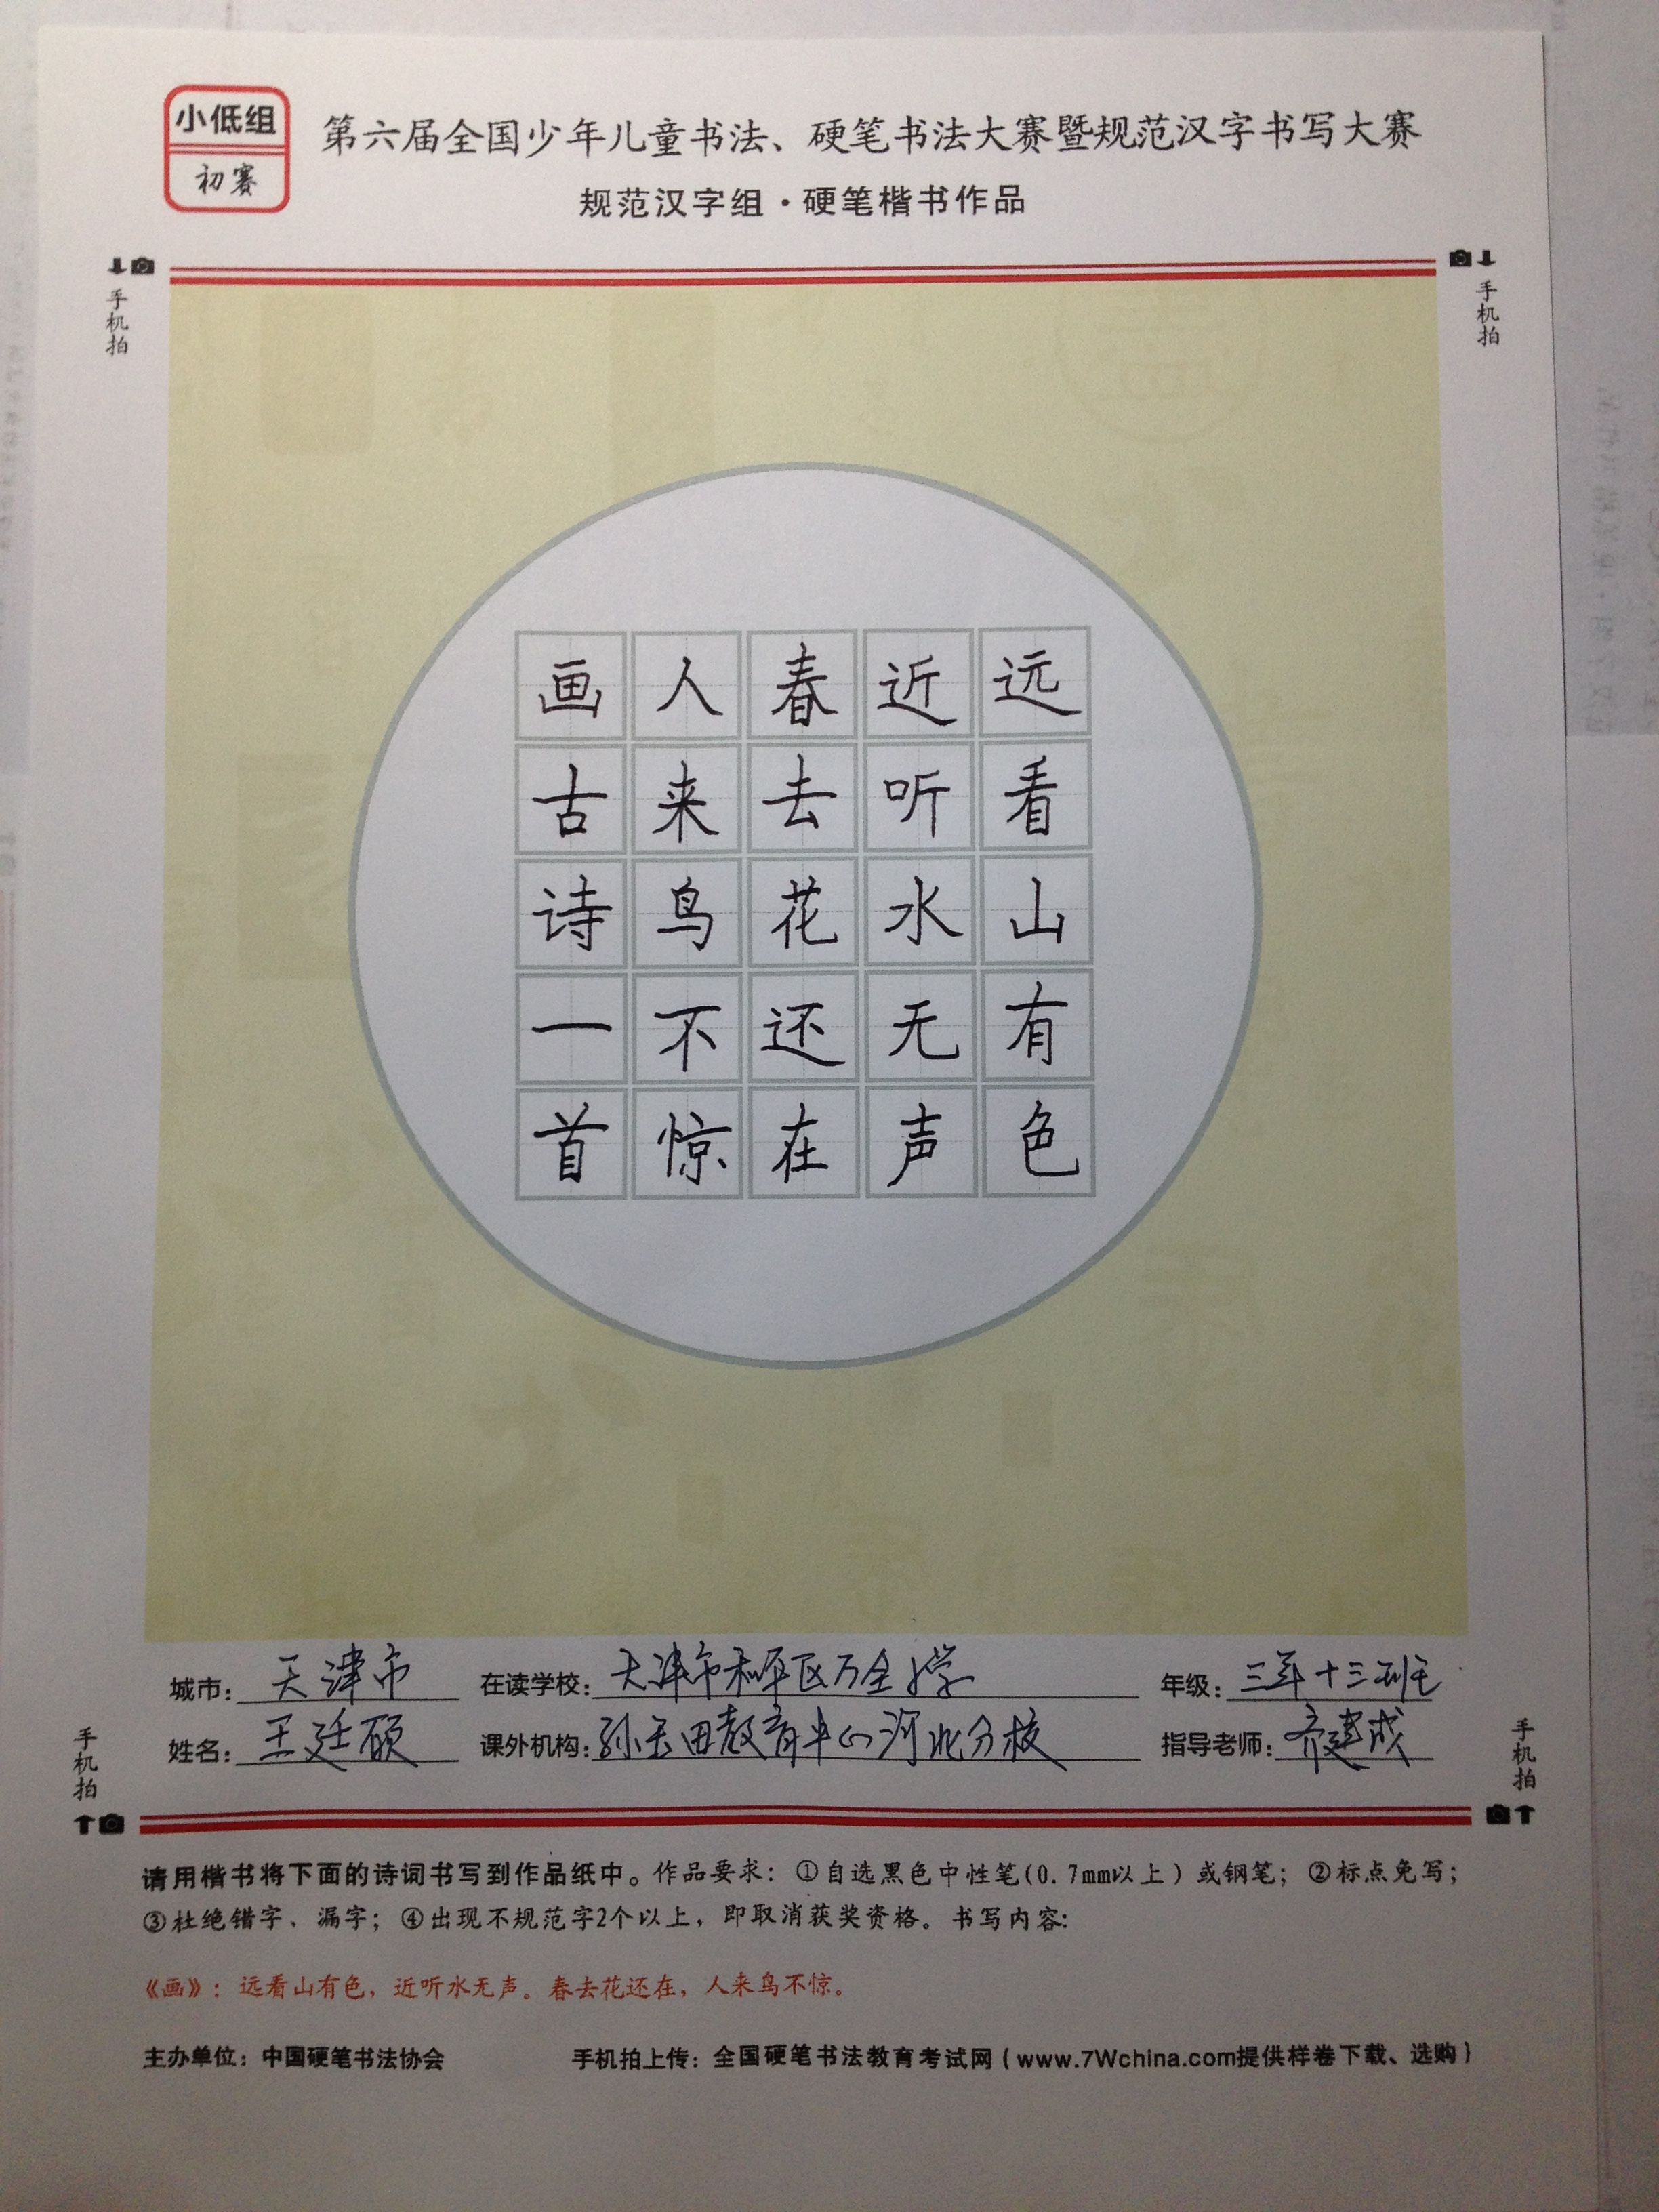 小低组
初赛
第六届全国少年儿童书法、硬笔书法大赛暨规范汉字书写大赛
规范汉字组·硬笔楷书作品
手机拍
手机拍
远看山有色
近听水无声
春去花还在
人来鸟不惊
画古诗一首
城市：天津市 在读学校：天津市和平区万全小学 年级：三年十三班
姓名：王廷硕 课外机构：孙玉田教育中心河北分校 指导老师：齐建成
手机拍
手机拍
请用楷书将下面的诗词书写到作品纸中。作品要求：①自选黑色中性笔(0.7mm以上）或钢笔；②标点免写；
③杜绝错字、漏字；④出现不规范字2个以上，即取消获奖资格。书写内容：
《画》：远看山有色，近听水无声。春去花还在，人来鸟不惊。
主办单位：中国硬笔书法协会 手机拍上传：全国硬笔书法教育考试网（www.7Wchina.com提供样卷下载、选购）